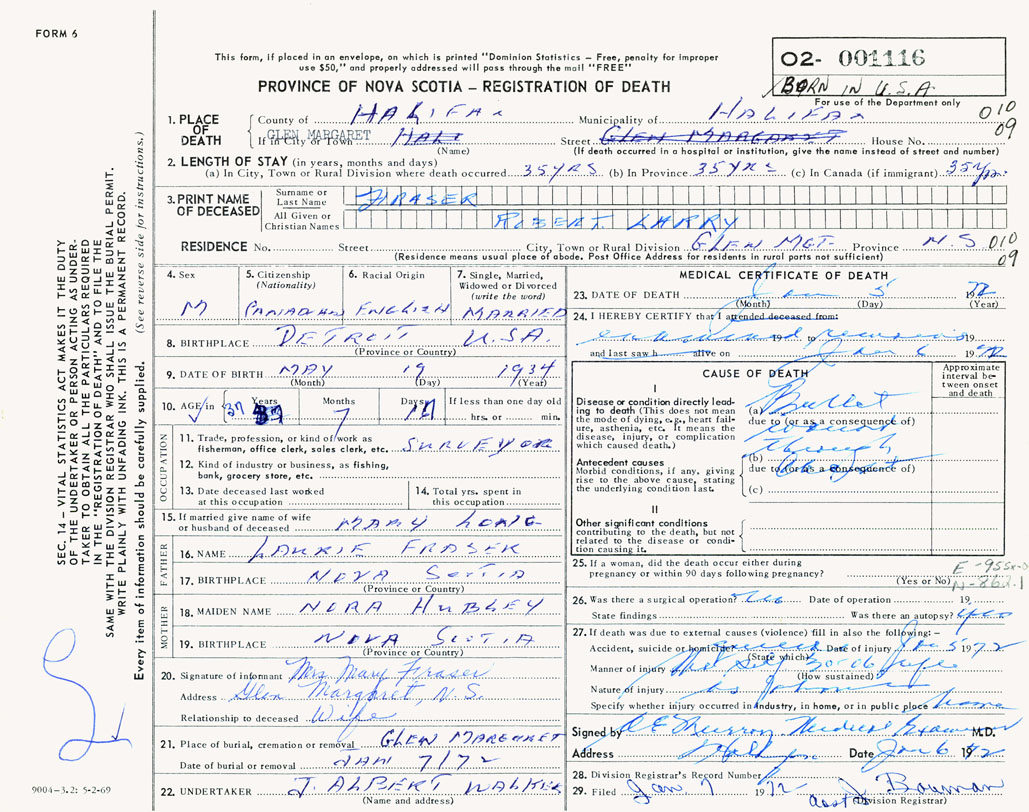 FORM 6
This form, if placed in an envelope, on which is printed "Dominion Statistics – Free, penalty for improper
use $50," and properly addressed will pass through the mail "FREE"
PROVINCE OF NOVA SCOTIA – REGISTRATION OF DEATH
O2- 001116
BORN IN U.S.A
For use of the Department only
010
09
1. PLACE OF DEATH
County of HALIFAX Municipality of HALIFAX
If in City or Town GLEN MARGARET Street GLEN MARGARET House No.
(Name) (If death occurred in a hospital or institution, give the name instead of street and number)
2. LENGTH OF STAY (in years, months and days)
(a) In City, Town or Rural Division where death occurred 35 YRS (b) In Province 35 YRS (c) In Canada (if immigrant) 35 yrs
3. PRINT NAME OF DECEASED
Surname or Last Name FRASER
All Given or Christian Names ROBERT LARRY
RESIDENCE No. Street City, Town or Rural Division GLEN MGT- Province N.S 010
09
(Residence means usual place of abode. Post Office Address for residents in rural parts not sufficient)
4. Sex M
5. Citizenship (Nationality) CANADIAN
6. Racial Origin ENGLISH
7. Single, Married, Widowed or Divorced (write the word) MARRIED
8. BIRTHPLACE DETROIT U.S.A.
(Province or Country)
9. DATE OF BIRTH MAY 19 1934
(Month) (Day) (Year)
10. AGE in Years 37 Months 7 Days If less than one day old
hrs. or min.
OCCUPATION
11. Trade, profession, or kind of work as
fisherman, office clerk, sales clerk, etc. SURVEYOR
12. Kind of industry or business, as fishing,
bank, grocery store, etc.
13. Date deceased last worked
at this occupation
14. Total yrs. spent in
this occupation
15. If married give name of wife
or husband of deceased MARY
FATHER
16. NAME LAURIE FRASER
17. BIRTHPLACE NOVA SCOTIA
(Province or Country)
MOTHER
18. MAIDEN NAME NORA HUBLEY
19. BIRTHPLACE NOVA SCOTIA
(Province or Country)
20. Signature of informant Mrs. Mary Fraser
Address Glen Margaret, N.S.
Relationship to deceased Wife
21. Place of burial, cremation or removal GLEN MARGARET
Date of burial or removal JAN 7/72
22. UNDERTAKER J. ALBERT WALKER
(Name and address)
MEDICAL CERTIFICATE OF DEATH
23. DATE OF DEATH Jan 5 1972
(Month) (Day) (Year)
24. I HEREBY CERTIFY that I attended deceased from:
19 to 19
and last saw h alive on Jan 6 1972
CAUSE OF DEATH
Approximate
interval be-
tween onset
and death
I
Disease or condition directly lead-
ing to death (This does not mean
the mode of dying, e.g., heart fail-
ure, asthenia, etc. It means the
disease, injury, or complication
which caused death.)
(a) Bullet
due to (or as a consequence of)
wound
through
Antecedent causes
Morbid conditions, if any, giving
rise to the above cause, stating
the underlying condition last.
(b)
due to (or as a consequence of)
(c)
II
Other significant conditions
contributing to the death, but not
related to the disease or condi-
tion causing it.
25. If a woman, did the death occur either during
pregnancy or within 90 days following pregnancy?
(Yes or No)
26. Was there a surgical operation? Date of operation 19
State findings Was there an autopsy?
27. If death was due to external causes (violence) fill in also the following:–
Accident, suicide or homicide Date of injury Jan 5 1972
(State which)
Manner of injury
(How sustained)
Nature of injury
Specify whether injury occurred in industry, in home, or in public place home
Signed by Medical Examiner M.D.
Address Date Jan 6 1972
28. Division Registrar's Record Number
29. Filed Jan 7 1972 J Bauman
(Division Registrar)
SEC. 14 – VITAL STATISTICS ACT MAKES IT THE DUTY
OF THE UNDERTAKER OR PERSON ACTING AS UNDER-
TAKER TO OBTAIN ALL THE PARTICULARS REQUIRED
IN THE "REGISTRATION OF DEATH" AND FILE THE
SAME WITH THE DIVISION REGISTRAR WHO SHALL ISSUE THE BURIAL PERMIT.
WRITE PLAINLY WITH UNFADING INK. THIS IS A PERMANENT RECORD.
Every item of information should be carefully supplied. (See reverse side for instructions.)
9004-3.2: 5-2-69